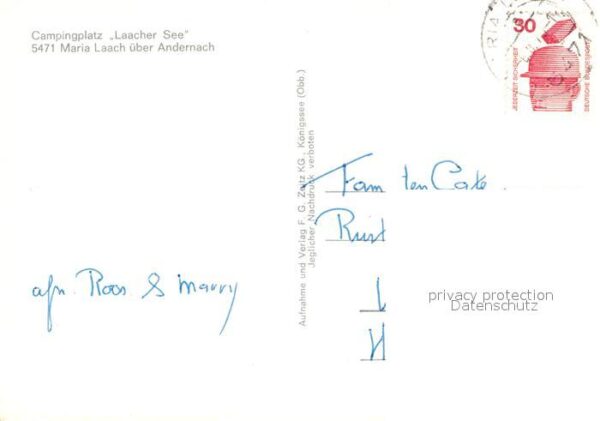 Campingplatz „Laacher See"
5471 Maria Laach über Andernach
30
JEDERZEIT SICHERHEIT
DEUTSCHE BUNDESPOST
Aufnahme und Verlag F. G. Zeitz KG., Königssee (Obb.)
Jeglicher Nachdruck verboten
Fam ten Cate
afn. Roos & Marry
privacy protection
Datenschutz